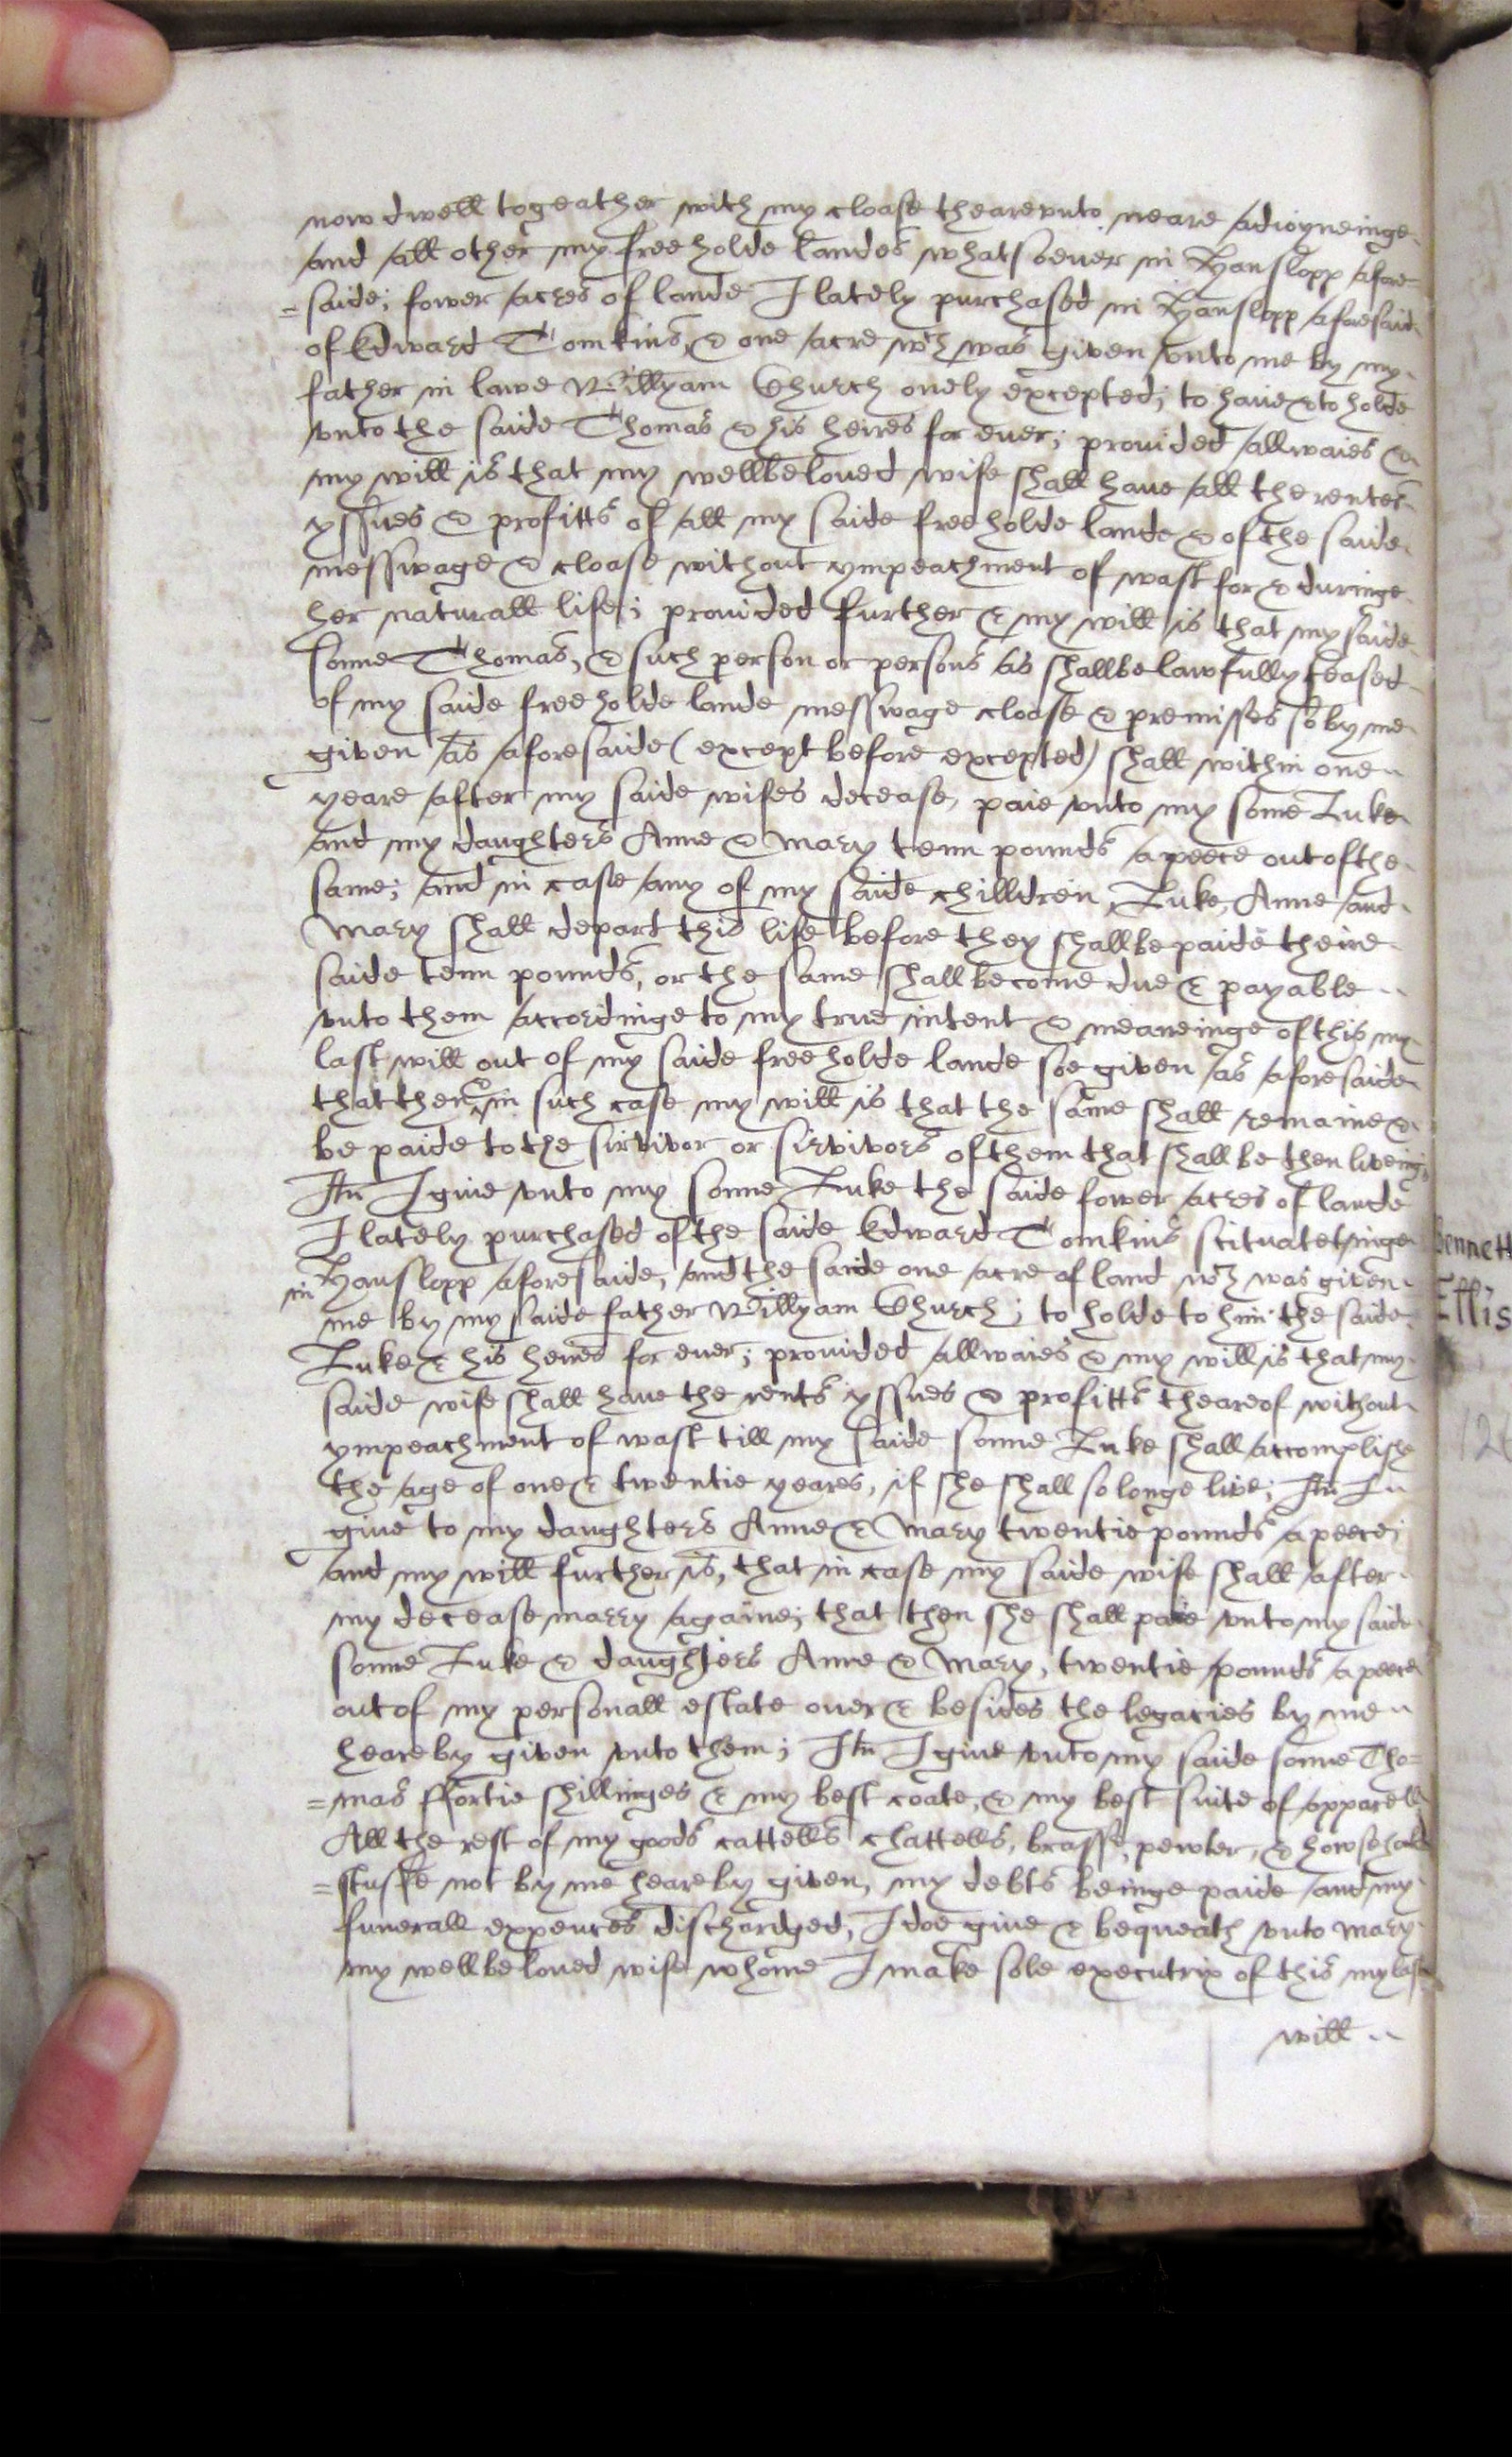 now dwell togeather with my cloase theareunto neare adioyneinge
and all other my freeholde landes whatsoeuer in Hanslopp afore
=saide; fower acres of lande I lately purchased in Hanslopp aforesaid
of Edward Tomkins, & one acre wch was given vnto me by my
father in lawe Willyam Church onely excepted; to haue & to holde
vnto the saide Thomas & his heires for euer; provided allwaies &
my will is that my wellbeloued wife shall haue all the rentes
yssues & profitts of all my saide freeholde lande & of the saide
messwage & cloase without ympeachment of wast for & duringe
her naturall life; prouided further & my will is that my saide
sonne Thomas, & such person or persons as shallbe lawfully seased
of my saide freeholde lande messwage cloase & premisses so by me
given as aforesaide (except before excepted) shall within one
yeare after my saide wifes decease, paie vnto my sonne Luke
and my daughters Anne & Mary tenn pounds a peece out of the
same; and in case any of my saide chilldren, Luke, Anne and
Mary shall depart this life before they shallbe paide theire
saide tenn pounds, or the same shall become due & payable
vnto them accordinge to my true intent & meaneinge of this my
last will out of my saide freeholde lande soe given as aforesaide
that then & in such case my will is that the same shall remaine &
be paide to the sirvivor or sirvivors of them that shall be then liveing;
Itm I giue vnto my sonne Luke the saide fower acres of lande
I lately purchased of the saide Edward Tomkins scituate lyinge
in Hanslopp aforesaide, and the saide one acre of land wch was given
me by my saide father Willyam Church; to holde to him the saide
Luke & his heires for euer; prouided allwaies & my will is that my
saide wife shall haue the rents yssues & profitts theareof without
ympeachment of wast till my saide sonne Luke shall accomplishe
the age of one & twentie yeares, if she shall so longe live; Itm I
giue to my daughters Anne & Mary twentie pounds a peece;
and my will further is, that in case my saide wife shall after
my decease marry againe; that then she shall paie vnto my saide
sonne Luke & daughters Anne & Mary, twentie pounds a peece
out of my personall estate ouer & besides the legacies by me
heareby given vnto them; Itm I giue vnto my saide sonne Tho=
=mas ffortie shillinges & my best coate, & my best suite of apparell
All the rest of my goods cattells chattells, brasse, pewter, & howsehold
=stuffe not by me heareby given, my debts beinge paide and my
funerall expences dischardged, I doe giue & bequeath vnto Mary
my wellbeloued wife whome I make sole executrix of this my last
will
Bennett
Ellis